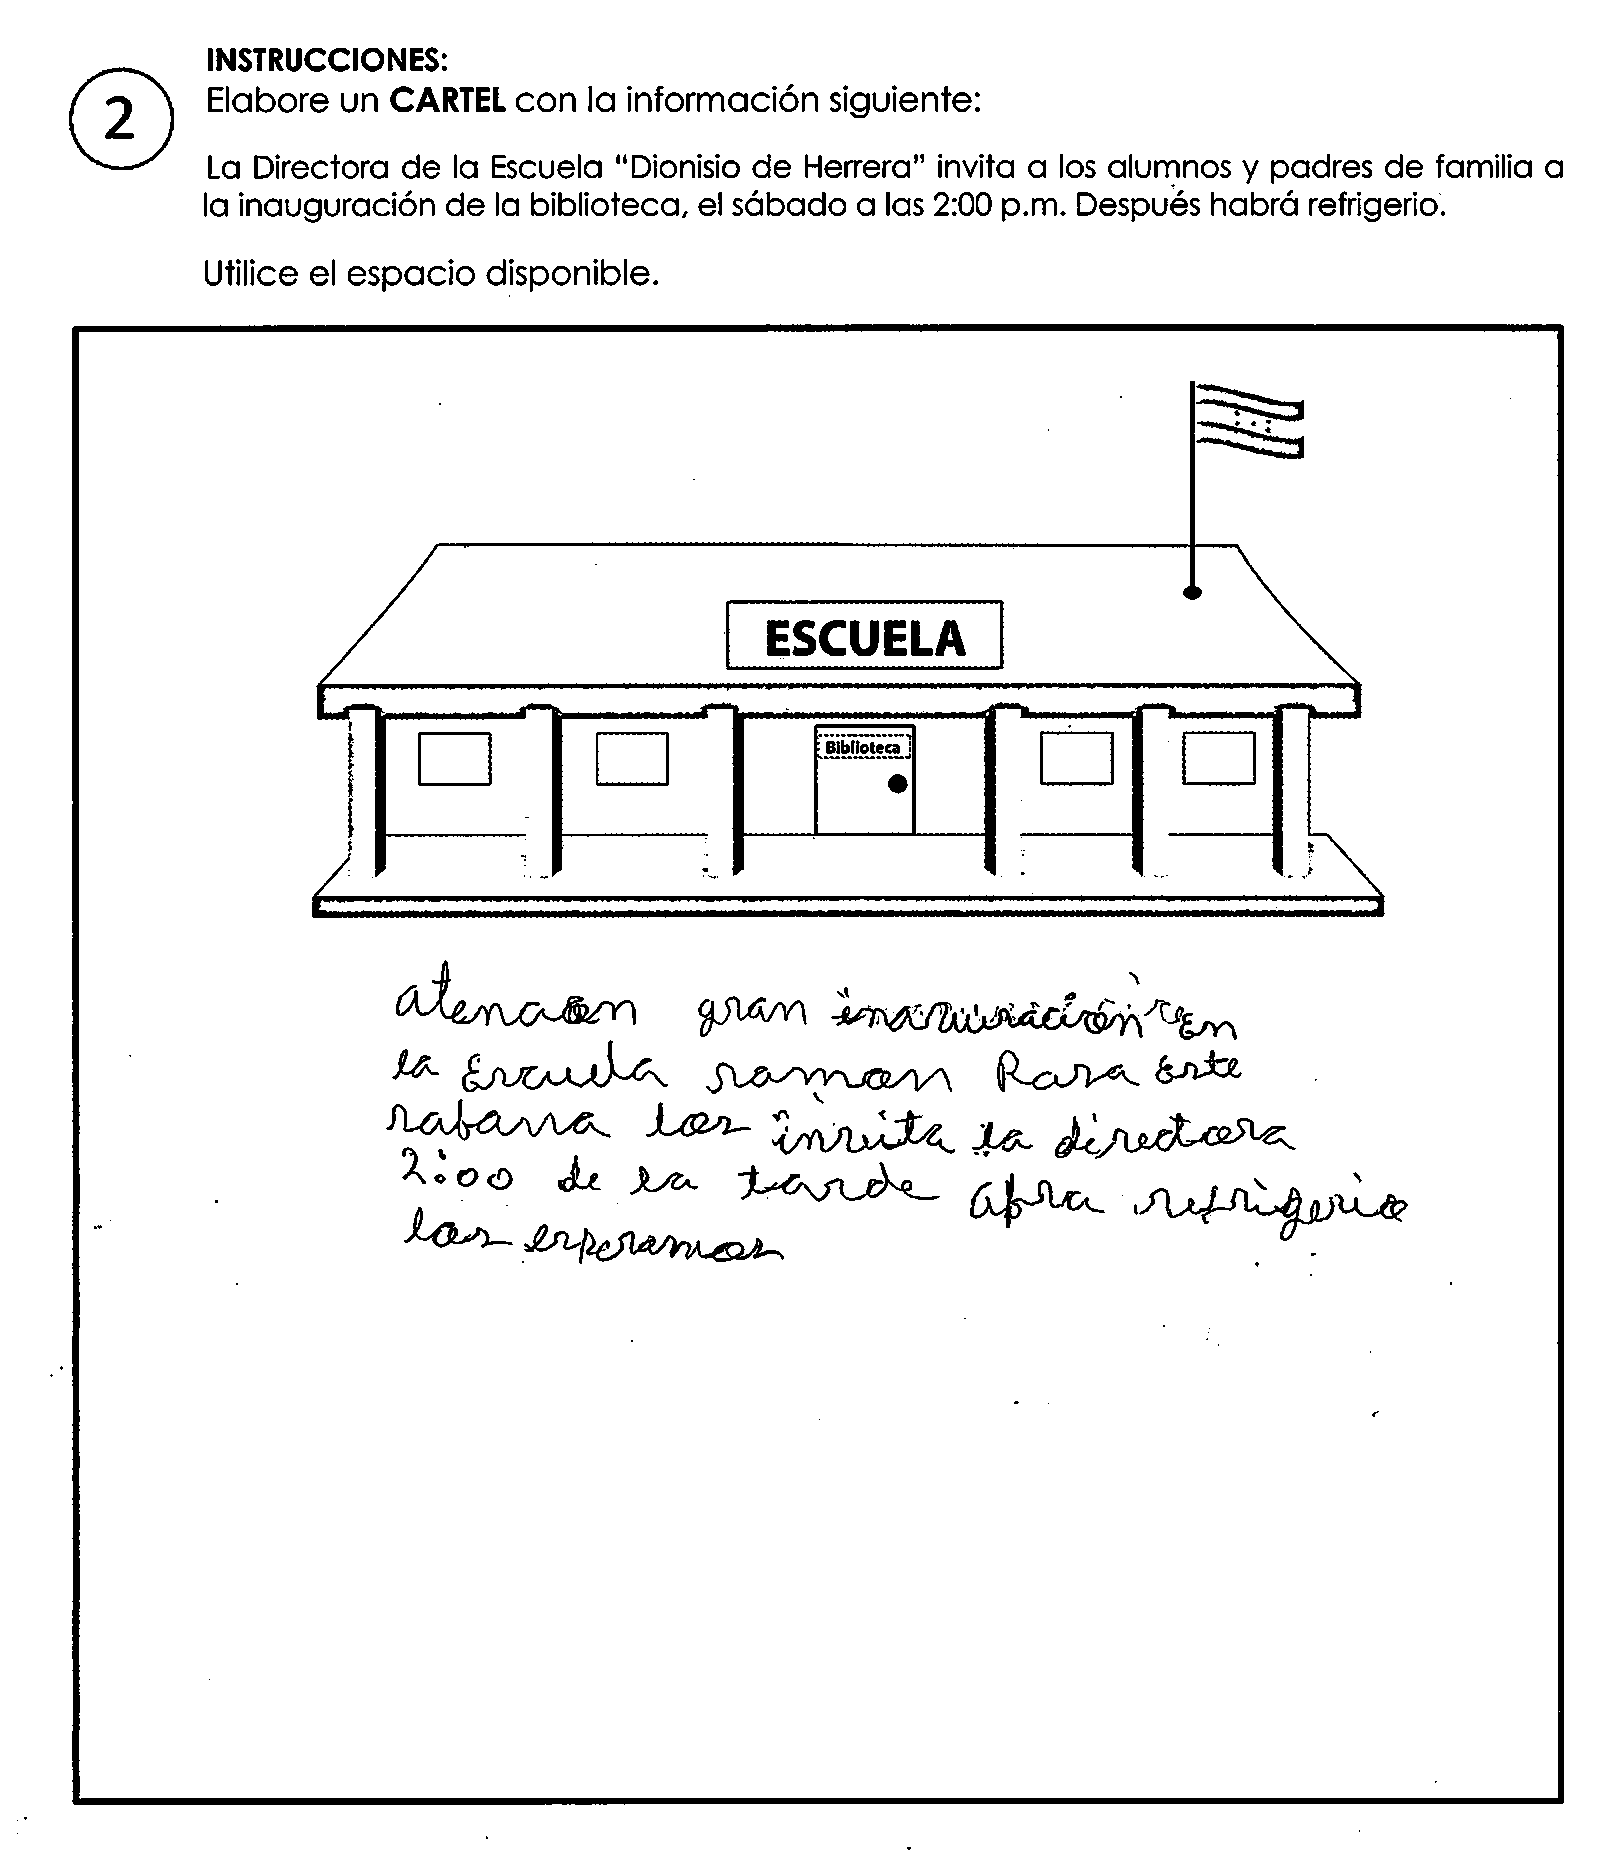 INSTRUCCIONES:
2
Elabore un CARTEL con la información siguiente:
La Directora de la Escuela "Dionisio de Herrera" invita a los alumnos y padres de familia a
la inauguración de la biblioteca, el sábado a las 2:00 p.m. Después habrá refrigerio.
Utilice el espacio disponible.
ESCUELA
Biblioteca
atencion gran En
la Escuela ramon Rosa Este
sabana los invita la directora
2:00 de la tarde abra refrigerio
los esperamos